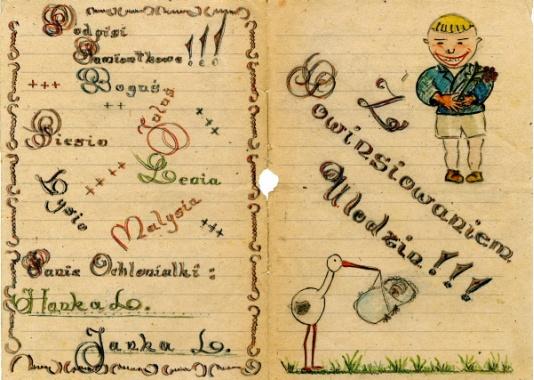 Podpisi
Pamiątkowe!!!
Boguś
Juluś
Giesio
Lysio
Lenia
Malysia
Panie Ochlonialki:
Hanka L.
Janka L.
Z
Powinsiowaniem
Ulodzin!!!